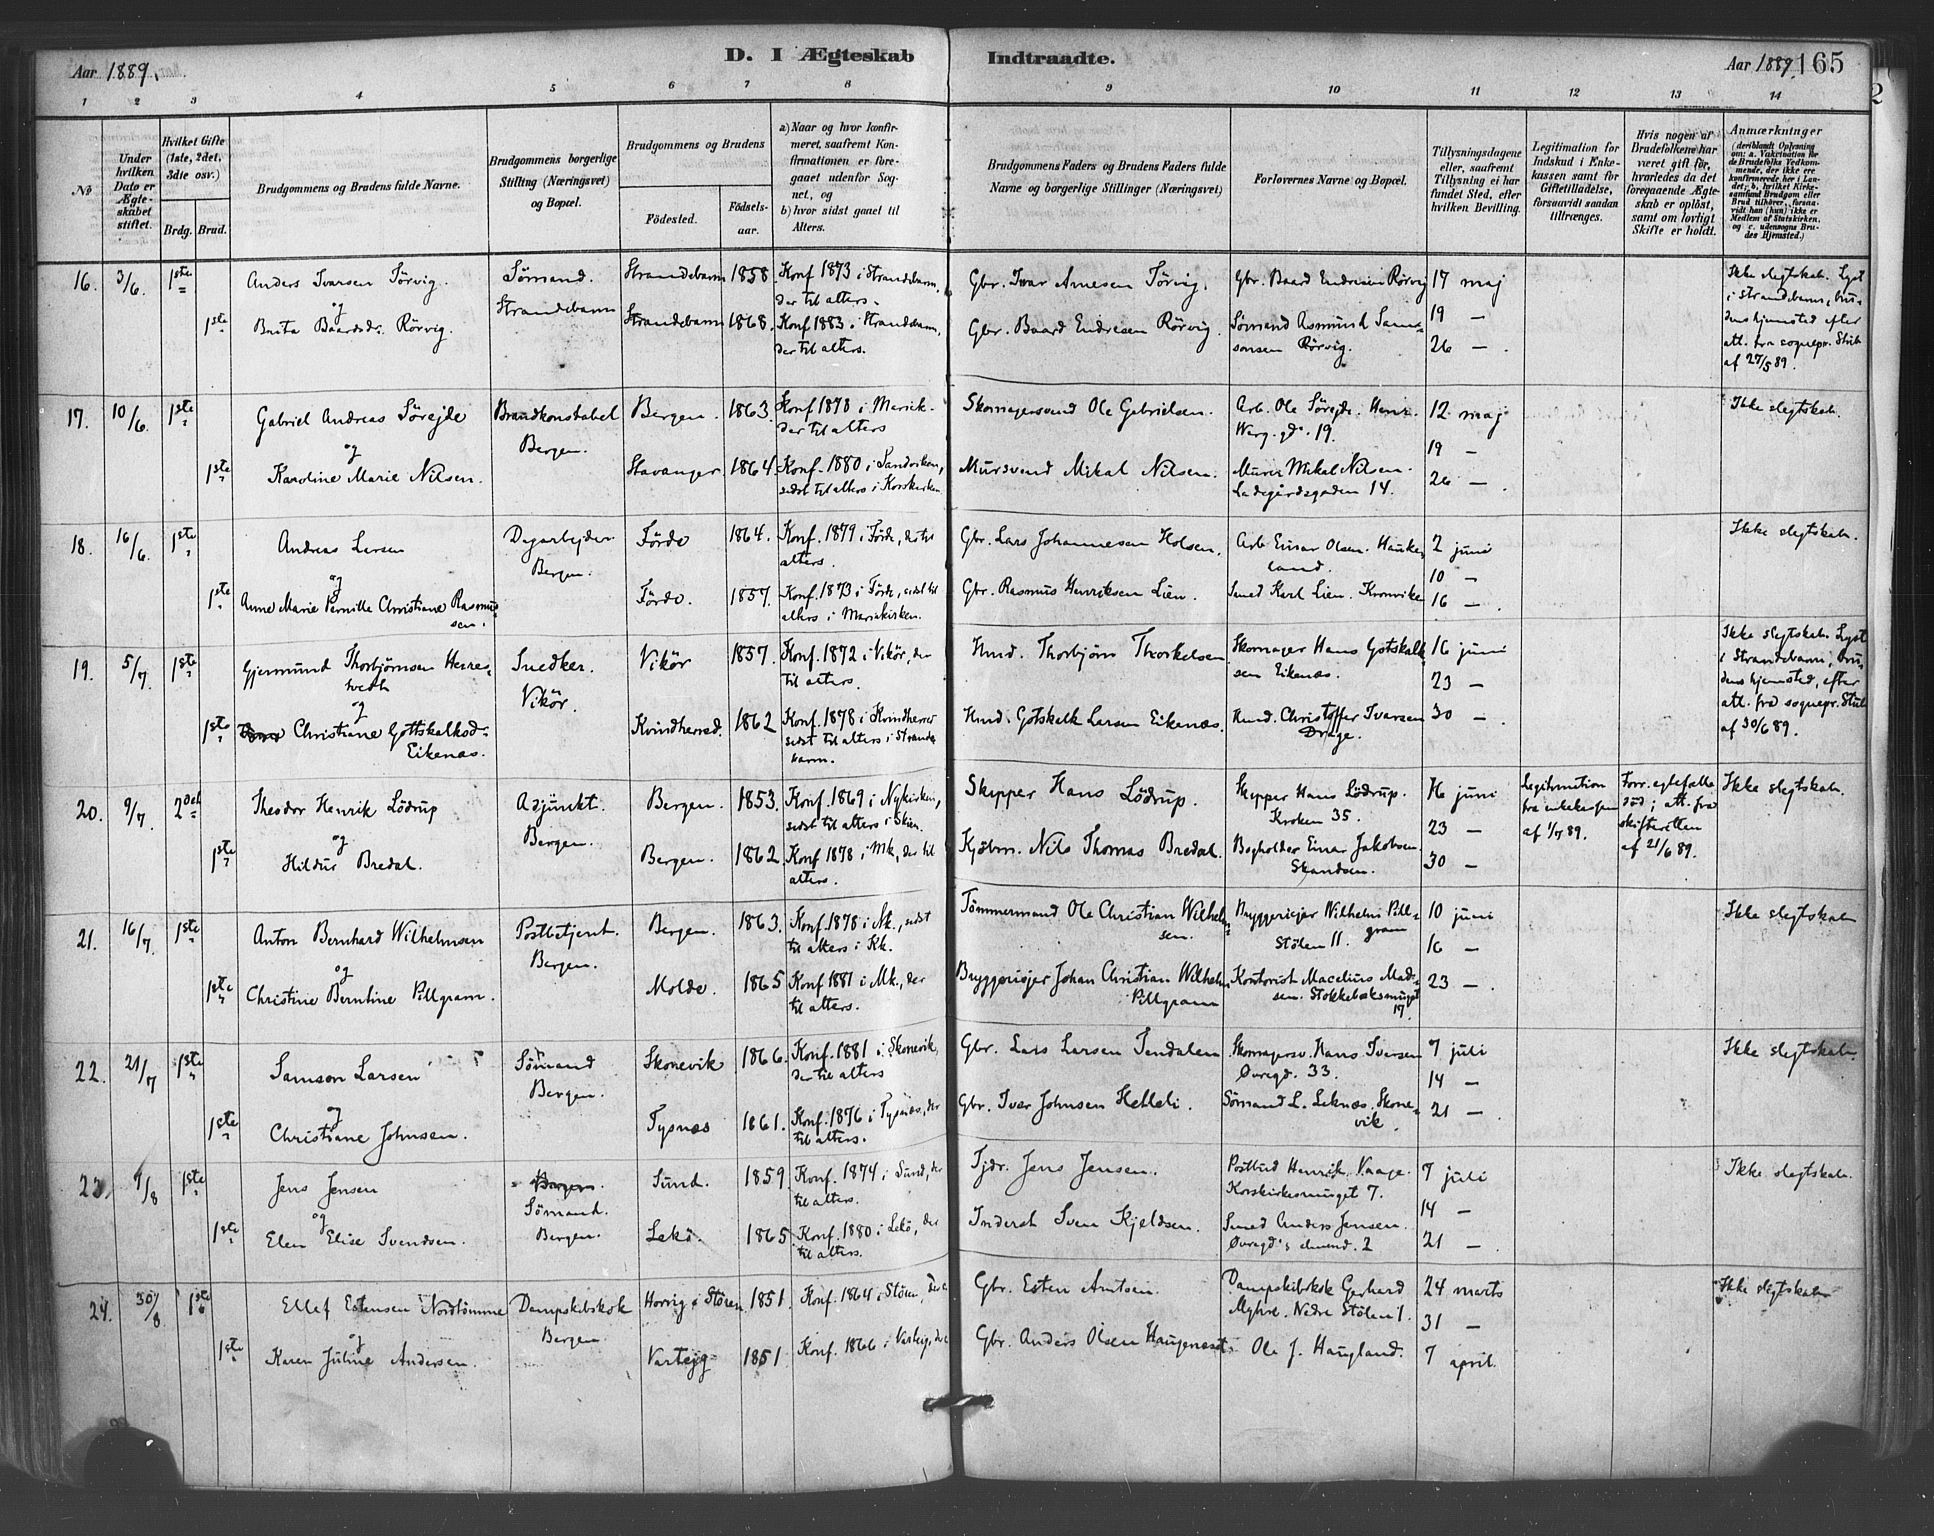 Aar 1889.
D. I Ægteskab Indtraadte.
Aar 1889. 165
1 2 3 4 5 6 7 8 9 10 11 12 13 14
No
Under hvilken Dato er Ægteskabet stiftet.
Hvilket Gifte (1ste, 2det, 3die osv.)
Brdg. Brud.
Brudgommens og Brudens fulde Navne.
Brudgommens borgerlige Stilling (Næringsvei) og Bopæl.
Brudgommens og Brudens
Födested. Födselsaar.
a) Naar og hvor konfirmeret, saafremt Konfirmationen er foregaaet udenfor Sognet, og
b) hvor sidst gaaet til Alters.
Brudgommens Faders og Brudens Faders fulde Navne og borgerlige Stillinger (Næringsvei)
Forlovernes Navne og Bopæl.
Tillysningsdagene eller, saafremt Tillysning ei har fundet Sted, efter hvilken Bevilling.
Legitimation for Indskud i Enkekassen samt for Giftetilladelse, forsaavidt saadan tiltrænges.
Hvis nogen af Brudefolkene har været gift för, hvorledes da det foregaaende Ægteskab er oplöst, samt om lovligt Skifte er holdt.
Anmærkninger
(deriblandt Oplysning om: a. Vakcination for de Brudefolks Vedkommende, der ikke ere konfirmerede her i Landet; b, hvilket Kirkesamfund Brudgom eller Brud tilhörer, forsaavidt han (hun) ikke er Medlem af Statskirken, og c. udensogns Brudes Hjemsted.)
16. 3/6. 1ste Anders Ivarsen Törvig. Sömand. Strandebarm 1858. Konf. 1873 i Strandebarm, der til alters. Gbr. Ivar Arnesen Törvig. Gbr. Baard Endresen Rörvig 17 maj
og Strandebarm 19 —
1ste Brita Baardsdr. Rörvig. Strandebarm 1868. Konf. 1883 i Strandebarm, der til alters. Gbr. Baard Endresen Rörvig. Sömand Asmund Samsonsen Rörvig. 26 —.
Ikke slegtskab. Lyst i Strandebarm, brudens hjemsted efter att. fra sognepr. Stub af 27/5 89.
17. 10/6. 1ste Gabriel Andreas Sörejde Brandkonstabel Bergen. 1863 Konf. 1878 i Mariek. der til alters Skomagersvend Ole Gabrielsen. Arb. Ole Sörejde. 19. 12 maj Ikke slegtskab.
og Bergen. 19 —
1ste Karoline Marie Nilsen. Stavanger. 1864. Konf. 1880 i Sandviken, sidst til alters i Korskirken. Mursvend Mikal Nilsen. Murer Mikal Nilsen. Ladegårdsgaden 14. 26 —.
18. 16/6. 1ste Andreas Larsen Dagarbejder Förde 1864. Konf. 1879 i Förde, der til alters. Gbr. Lars Johannesen Holsen. Arb. Einar Olsen. Haukeland. 2 juni Ikke slegtskab.
og Bergen. 10 —
1ste Anne Marie Pernille Christiane Rasmussen. Förde. 1857. Konf. 1873 i Förde, sidst til alters i Mariakirken. Gbr. Rasmus Henriksen Lien. Smed Karl Lien. Kronviken 16 —.
19. 5/7. 1ste Gjermund Thorbjörnsen Snedker. Vikör 1857. Konf. 1872 i Vikör, der til alters. Hmd. Thorbjörn Thorkelsen Skomager Hans Gotskalksen Eikenæs. 16 juni
og Vikör. 23 —
1ste Christiane Gottskalksd. Eikenæs. Kvindherred. 1862 Konf. 1878 i Kvindherred sidst til alters i Strandebarm. Hmd. Gotskalk Larsen Eikenæs. Hmd. Christoffer Ivarsen Drage. 30 —.
Ikke slegtskab. Lyst i Strandebarm, brudens hjemsted, efter att. fra sognepr. Stub af 30/6 89.
20. 9/7. 2det Theodor Henrik Lödrup Adjunkt. Bergen. 1853. Konf. 1869 i Nykirken, sidst til alters i Skien. Skipper Hans Lödrup. Skipper Hans Lödrup. Kroken 35. 16 juni Legitimation fra enkekassen af 1/7 89. Forr. egtefælle död; att. fra skifteretten af 21/6 89. Ikke slegtskab.
og Bergen. 23 —
1ste Hildur Bredal. Bergen. 1862. Konf. 1878 i Mk, der til alters. Kjöbm. Nils Thomas Bredal. Bogholder Einar Jakobsen Skandsen. 30 —
21. 16/7. 1ste Anton Bernhard Wilhelmsen Postbetjent. Bergen. 1863. Konf. 1878 i Nk., sidst til alters i Kk. Tömmermand Ole Christian Wilhelmsen. Bryggeriejer Wilhelm Pillgram Stölen 11. 10 juni Ikke slegtskab
og Bergen. 16 —
1ste Christine Berntine Pillgram. Molde. 1865 Konf. 1881 i Mk., der til alters. Bryggeriejer Johan Christian Wilhelm Pillgram Kontorist Macelius Madsen. Stokkebæksmuget 17. 23 —.
22. 21/7 1ste Samson Larsen Sömand Skonevik 1866. Konf. 1881 i Skonevik, der til alters Gbr. Lars Larsen Tendalen Skomagersv. Hans Iversen Øvregd. 33. 7 juli Ikke slegtskab.
og Bergen. 14 —
1ste Christiane Johnsen. Tysnæs 1861. Konf. 1876 i Tysnæs, der til alters. Gbr. Ivar Johnsen Helleli. Sömand L. Leknæs. Skonevik. 21 —.
23. /8 1ste Jens Jensen Bergen. Sund. 1859. Konf. 1874 i Sund, der til alters. Tjdr. Jens Jensen. Postbud Henrik Vaage. Korskirkesmuget 7. 7 juli Ikke slegtskab.
og Sömand. 14 —
1ste Elen Elise Svendsen. Bergen. Lekö. 1865. Konf. 1880 i Lekö, der til alters. Inderst Sven Kjeldsen. Smed Anders Jensen. Øvregd's almend. 2 21 —.
24. 30/8 1ste Ellef Estensen Nordtömme Dampskibskok Horvig i Stören 1851. Konf. 1864 i Stören, Gbr. Esten Arntsen. Dampskibskok Gerhard Myhre. Nedre Stölen 1. 24 marts Ikke slegtskab
og Bergen. 31 —
1ste Karen Juline Andersen. Varteig 1851. Konf. 1866 i Varteig, Gbr. Anders Olsen Ole J. Haugland. 7 april.